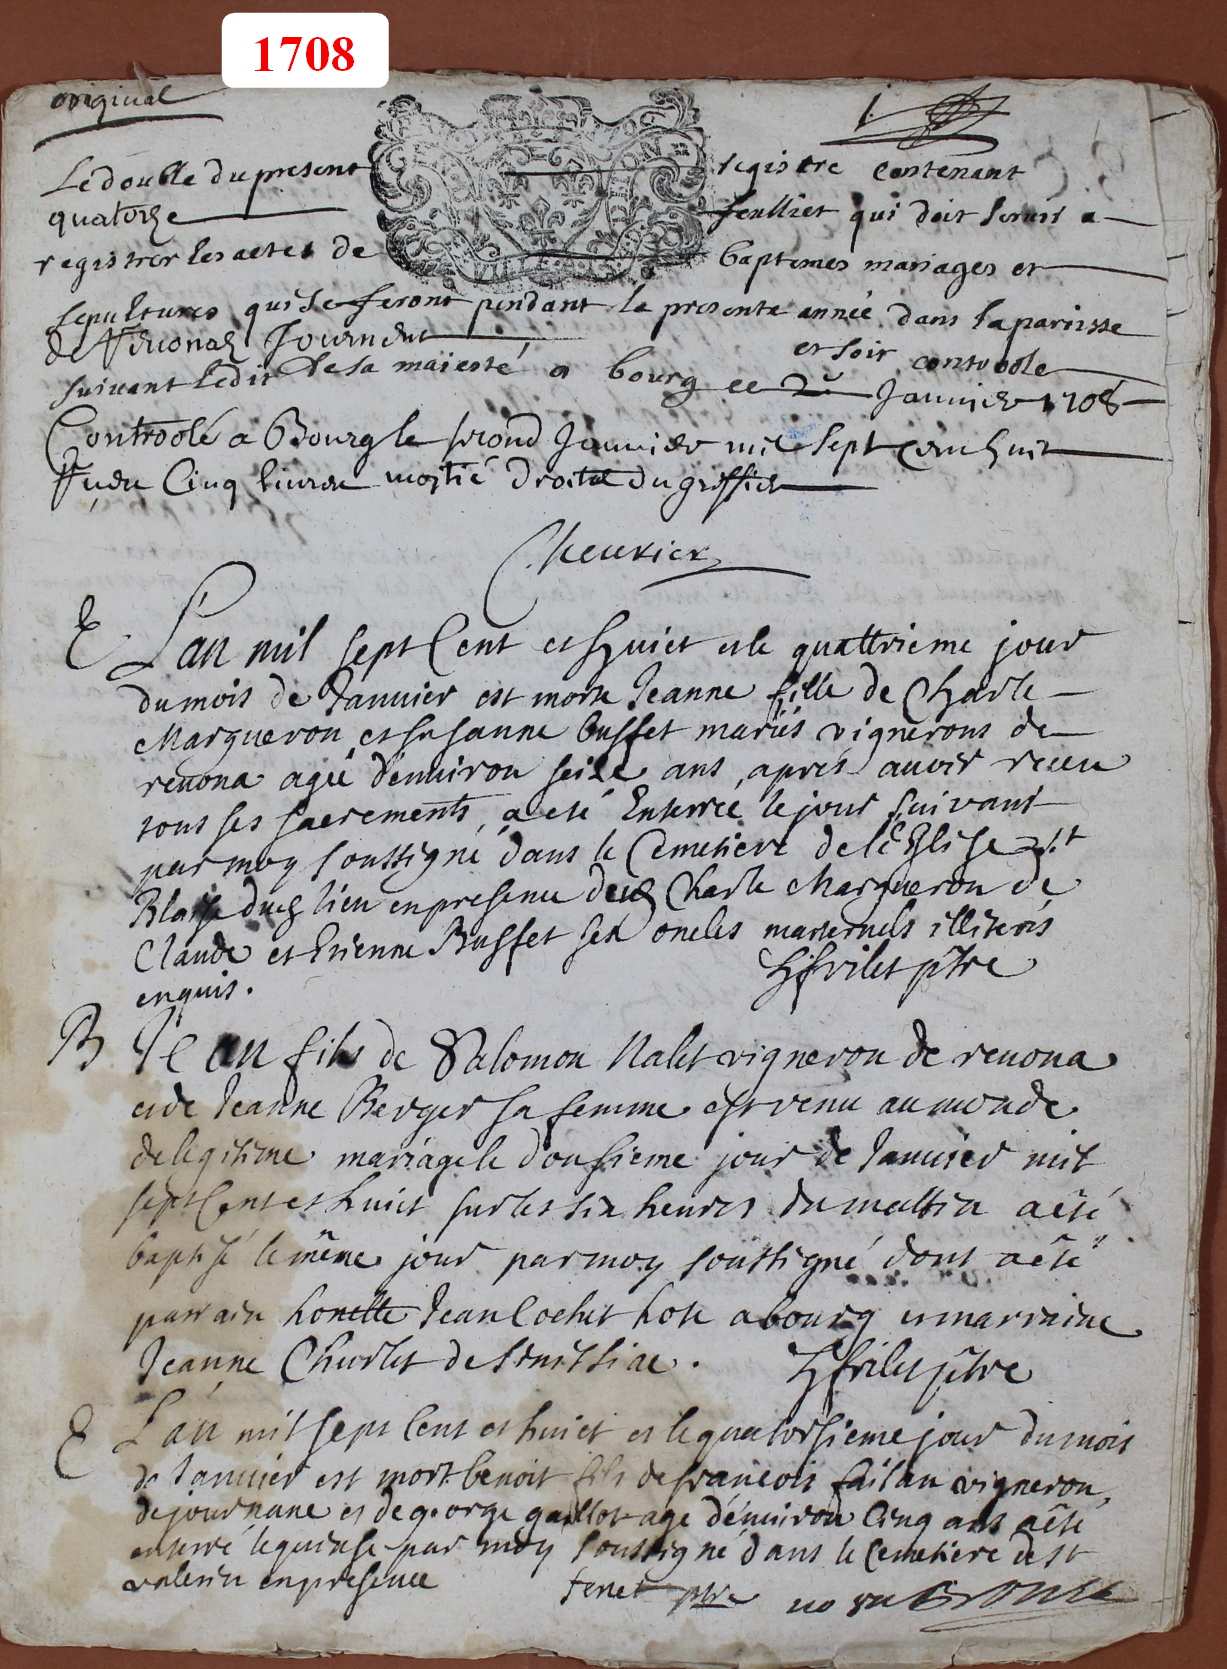 1708
original
1.
Le double du present registre contenant
quatorze feulliet qui doit servir a
registrer les actes de baptemes mariages et
sepultures qui se feront pendant la presente année dans la paroisse
de Journent et soit controole
suivant ledit de sa maiesté a bourg ce 2e Janvier 1708
Controolé a Bourg le second Janvier mil sept cent huit
Cinq livres moitié droits du greffier
Cheurier
E L'an mil sept Cent et huict et le quattrieme jour
du mois de Januier est morte Jeanne fille de Charle
Margueron et susanne buffet mariés vignerons de
reuona agée d'enuiron seize ans, aprés auoir receu
tous ses sacrements, a eté Enterrée le jour suivant
par moy soussigné dans le Cemetiere de l'Eglise de St
Blaise dud lieu en presence de Charle Margueron de
Claude et Etienne Buffet ses oncles maternels illiterés
enquis. frilet ptre
B Jean fils de Salomon Nalet vigneron de reuona
et de Jeanne Berger sa femme est venu au monde
de legitime mariage le dousieme jour de Januier mil
sept Cent et huict sur les six heures du mattin a êté
baptisé le même jour par moy soussigné dont a êté
parrain honette Jean Cochet hote a bourg et marraine
Jeanne Charlet de . frilet ptre
E L'an mil sept Cent et huict et le quatorsieme jour du mois
de Januier est mort benoit fils de francois failan vigneron
de journans et de george gaillot agé d'enuiron Cinq ans a êté
enterré le quinse par moy soussigné dans le Cemetiere de st
valerin en presence tenet ptre